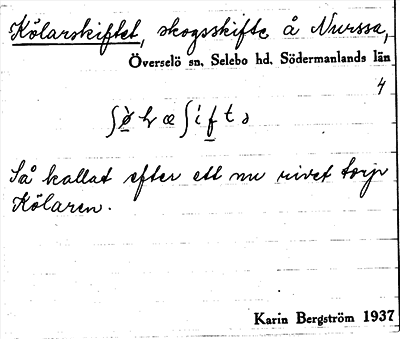 Kölarskiftet, skogsskifte å Nurssa,
Överselö sn, Selebo hd, Södermanlands län
4
Så kallat efter ett nu rivet torp
Kölaren.
Karin Bergström 1937